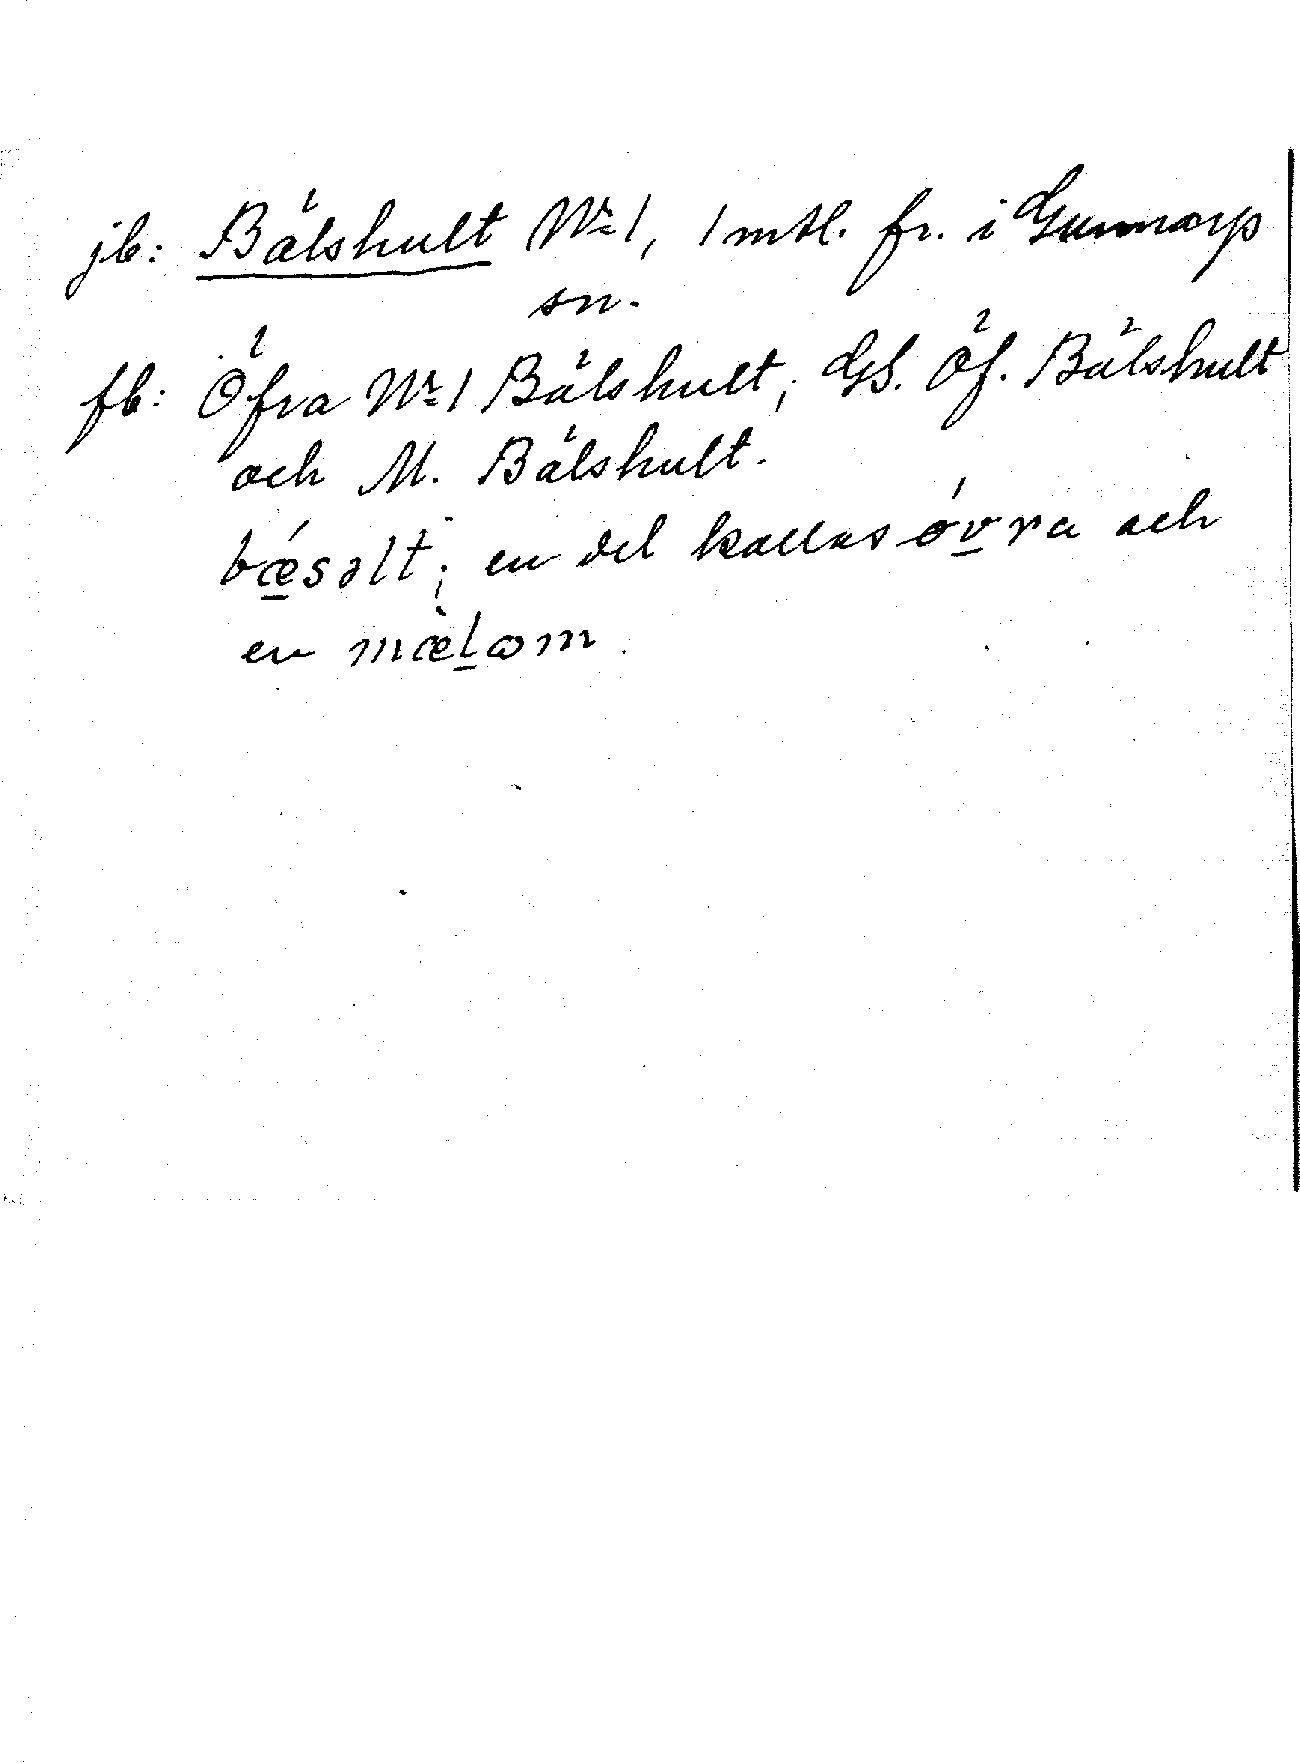 jb: Bälshult No 1, 1 mtl. fr. i Gunnarp
sn.
fb: Öfra No 1 Bälshult; GS. Öf. Bälshult
och M. Bälshult.
bǽsəlt; en del kallas ǿvra och
en mæ̀lɷm.